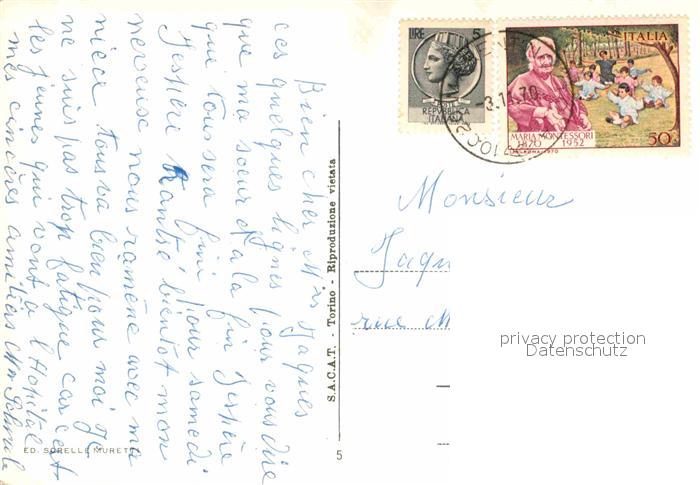 Bien cher Mrs Jaques
ces quelques lignes pour vous dire
que ma soeur et a la fin j'espère
que tous sera fini pour samedi
j'espère bientot mon
nerveuse nous ramène avec ma
nièce tous va bien pour moi je
ne suis pas trop fatigue car cest
les jeunes qui vont a l'hopital
mes cincères amitiés
ED. SORELLE MURETT
S.A.C.A.T. - Torino - Riproduzione vietata
5
LIRE 5
REPVBBLICA
ITALIANA
3.11.70
ITALIA
MARIA MONTESSORI
1870 1952
50
Monsieur
Jaqu
rue M
privacy protection
Datenschutz